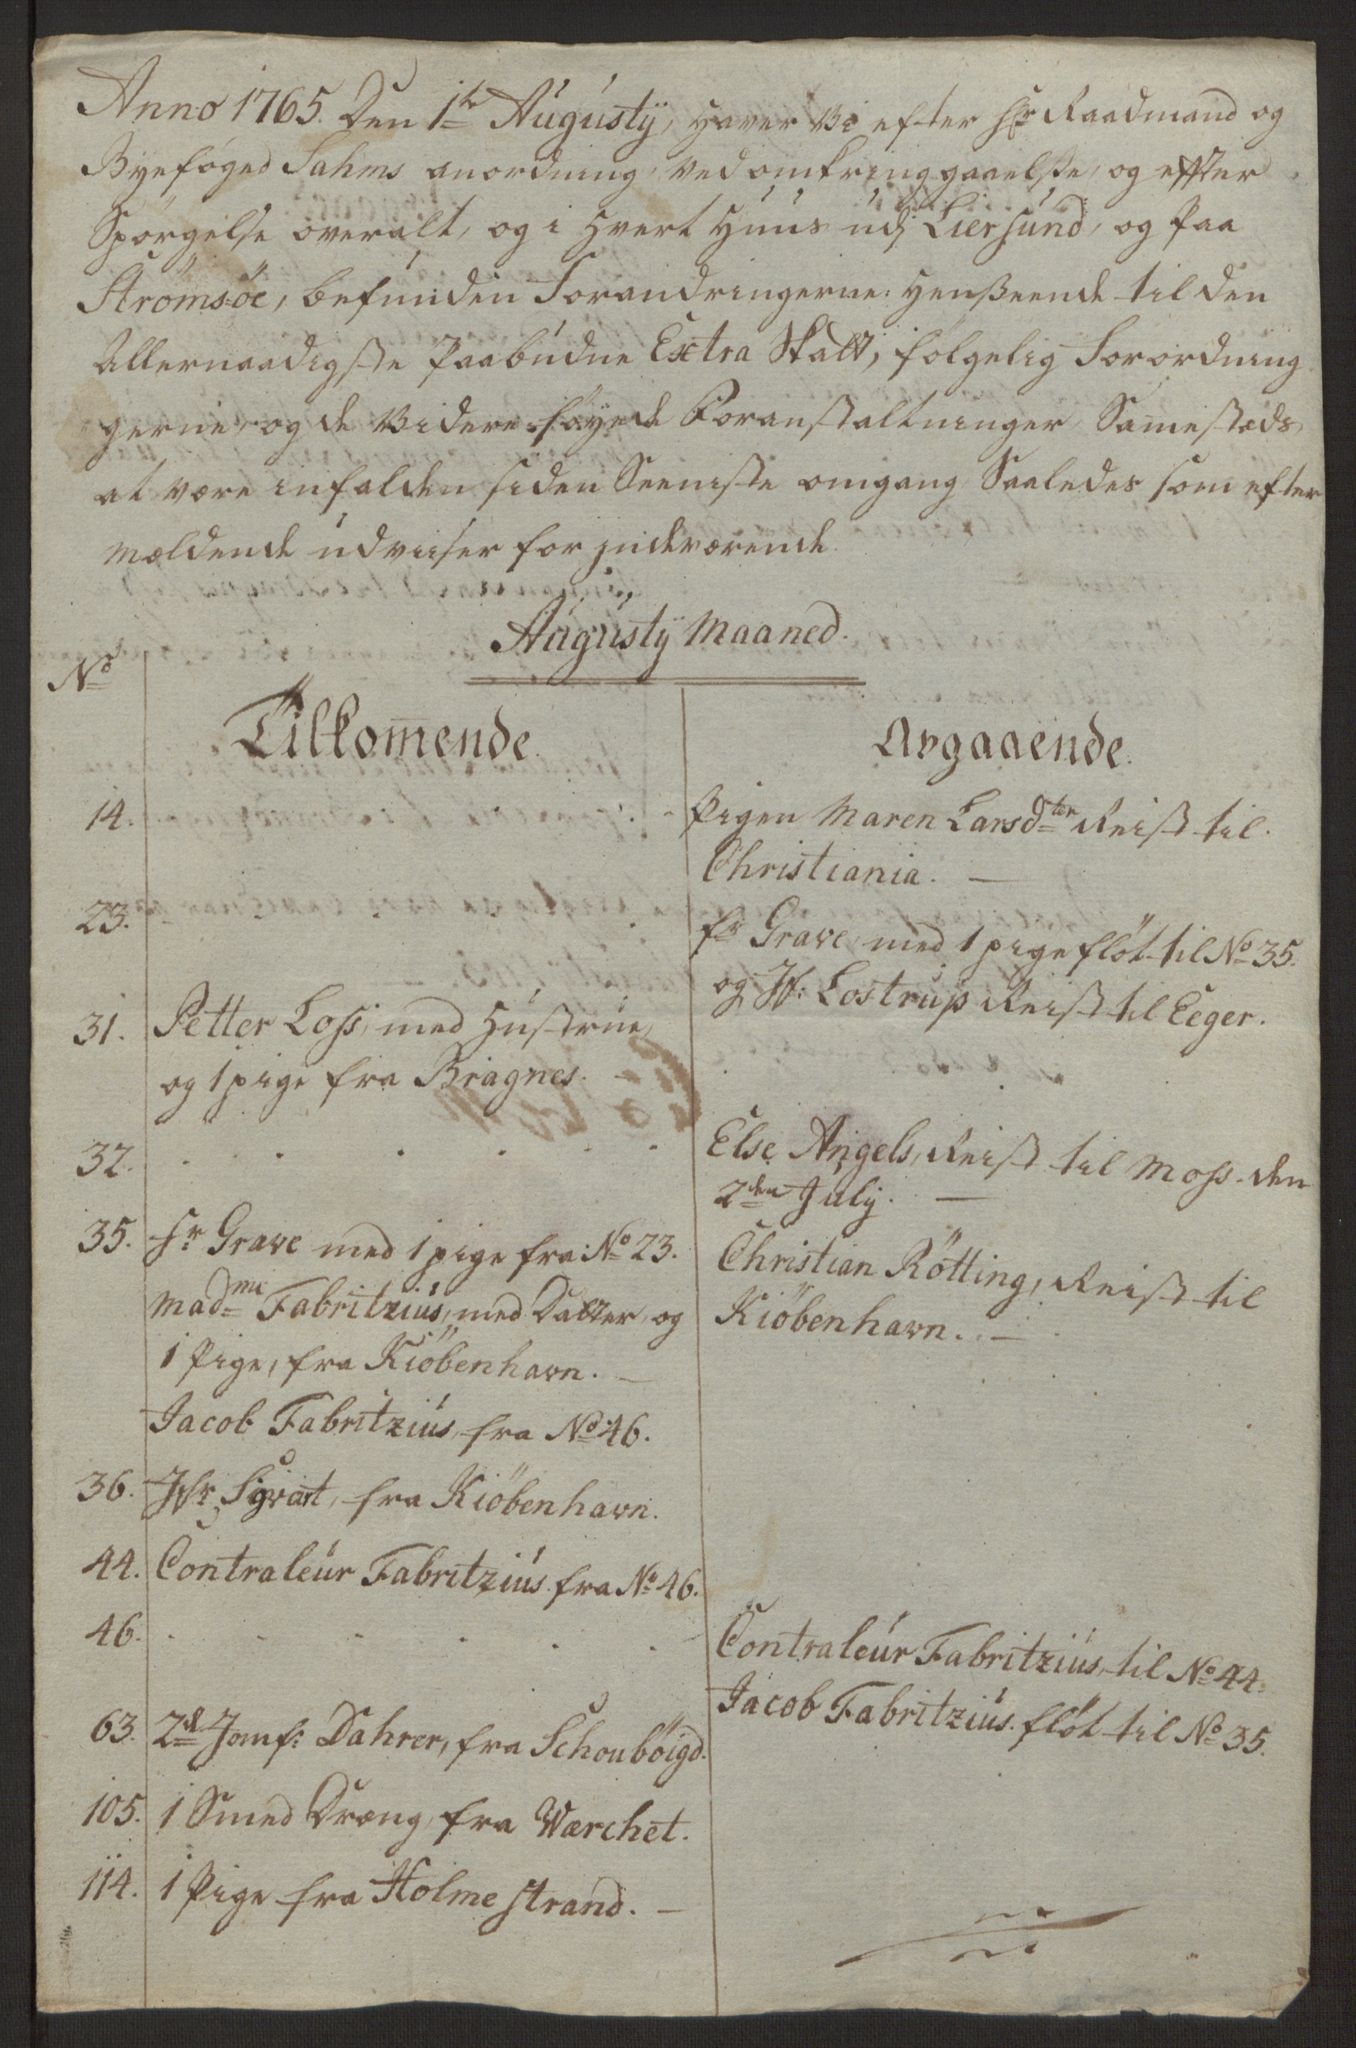 Anno 1765. Den 1te Augusty, haver Vi efter Hr Raadmand og
Byefoged Sahms anordning, ved omkringgaaelsse, og effter
Spørgelse overalt, og i hvert Huus udj Liersund, og paa
Strömsöe, befunden Forandringerne: henseende til den
Allernaadigste Paabudne Extra Skatt, følgelig Forordning
gerne, og de Videre föyede Foranstaltninger Samesteds,
at være infalden siden Seeniste omgang Saaledes som efter
mældende udviser for indeværende
Augusty Maaned.
No
Tilkomende. Avgaaende.
14. Pigen Maren Larsdter Reist til
Christiania. —
23. Hr Grave, med 1 pige fløt til No 35.
og Jf: Lostrup Reist til Eeger.
31. Petter Loss, med Hustrue,
og 1 pige fra Bragnes.
32. Else Angels, Reist til Moss den
2den July. —
35. Hr Grave med 1 pige fra No 23. Christian Rötting, Reist til
Madme Fabritzius, med Datter, og Kiöbenhavn. —
1 Pige, fra Kiöbenhavn. —
Jacob Fabritzius, fra No 46.
36. Jfr Sigvart, fra Kiöbenhavn.
44. Contraleur Fabritzius fra No 46.
46. Contraleur Fabritzius, til No 44.
Jacob Fabritzius fløt til No 35.
63. 2de Jomf: Dahrer, fra Schouböigd.
105. 1 Smed Dræng, fra Værchet.
114. 1 Pige fra Holmestrand. —